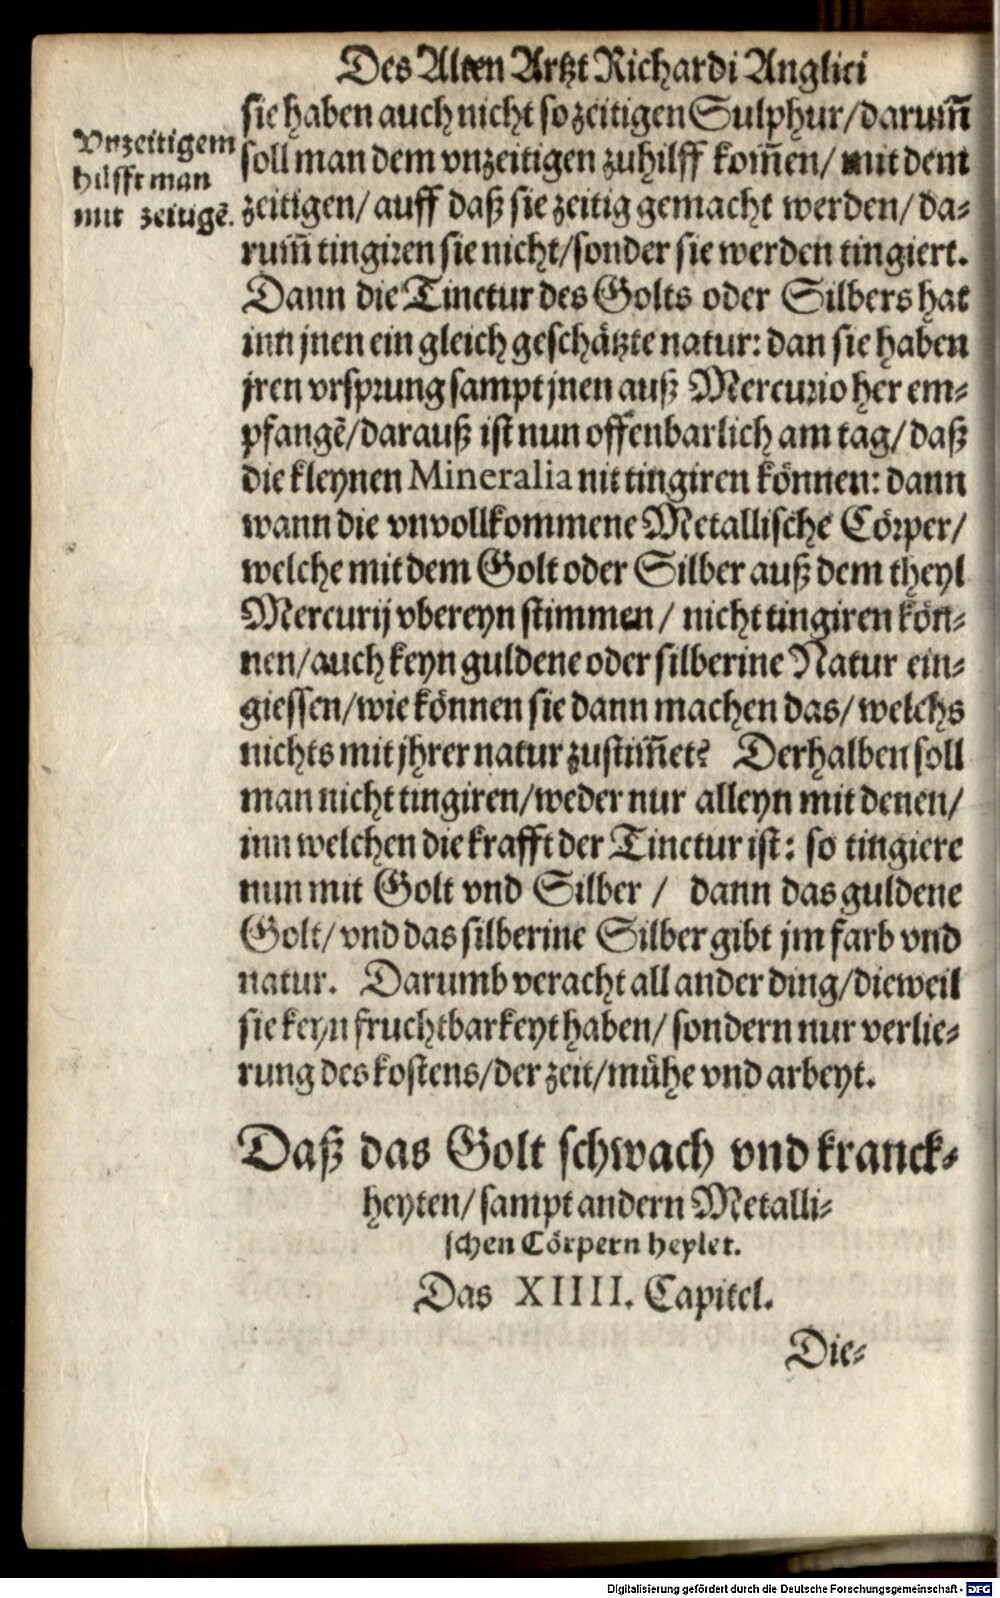 Des Alten Artzt Richardi Anglici
sie haben auch nicht so zeitigen Sulphur/darum̃
Vnzeitigem
hilfft man
mit zeitigẽ.
soll man dem vnzeitigen zuhilff kom̃en/ mit dem
zeitigen/ auff daß sie zeitig gemacht werden/ da⸗
rum̃ tingiren sie nicht/sonder sie werden tingiert.
Dann die Tinctur des Golts oder Silbers hat
inn jnen ein gleich geschätzte natur: dan sie haben
jren vrsprung sampt jnen auß Mercurio her em⸗
pfangẽ/darauß ist nun offenbarlich am tag/ daß
die kleynen Mineralia nit tingiren können: dann
wann die vnvollkommene Metallische Cörper/
welche mit dem Golt oder Silber auß dem theyl
Mercurij vbereyn stimmen/ nicht tingiren kön⸗
nen/auch keyn guldene oder silberine Natur ein⸗
giessen/wie können sie dann machen das/ welchs
nichts mit jhrer natur zustim̃et? Derhalben soll
man nicht tingiren/weder nur alleyn mit denen/
inn welchen die krafft der Tinctur ist: so tingiere
nun mit Golt vnd Silber/ dann das guldene
Golt/ vnd das silberine Silber gibt jm farb vnd
natur. Darumb veracht all ander ding/dieweil
sie keyn fruchtbarkeyt haben/ sondern nur verlie⸗
rung des kostens/der zeit/mühe vnd arbeyt.
Daß das Golt schwach vnd kranck⸗
heyten/sampt andern Metalli⸗
schen Cörpern heylet.
Das XIIII. Capitel.
Die⸗
Digitalisierung gefördert durch die Deutsche Forschungsgemeinschaft - DFG